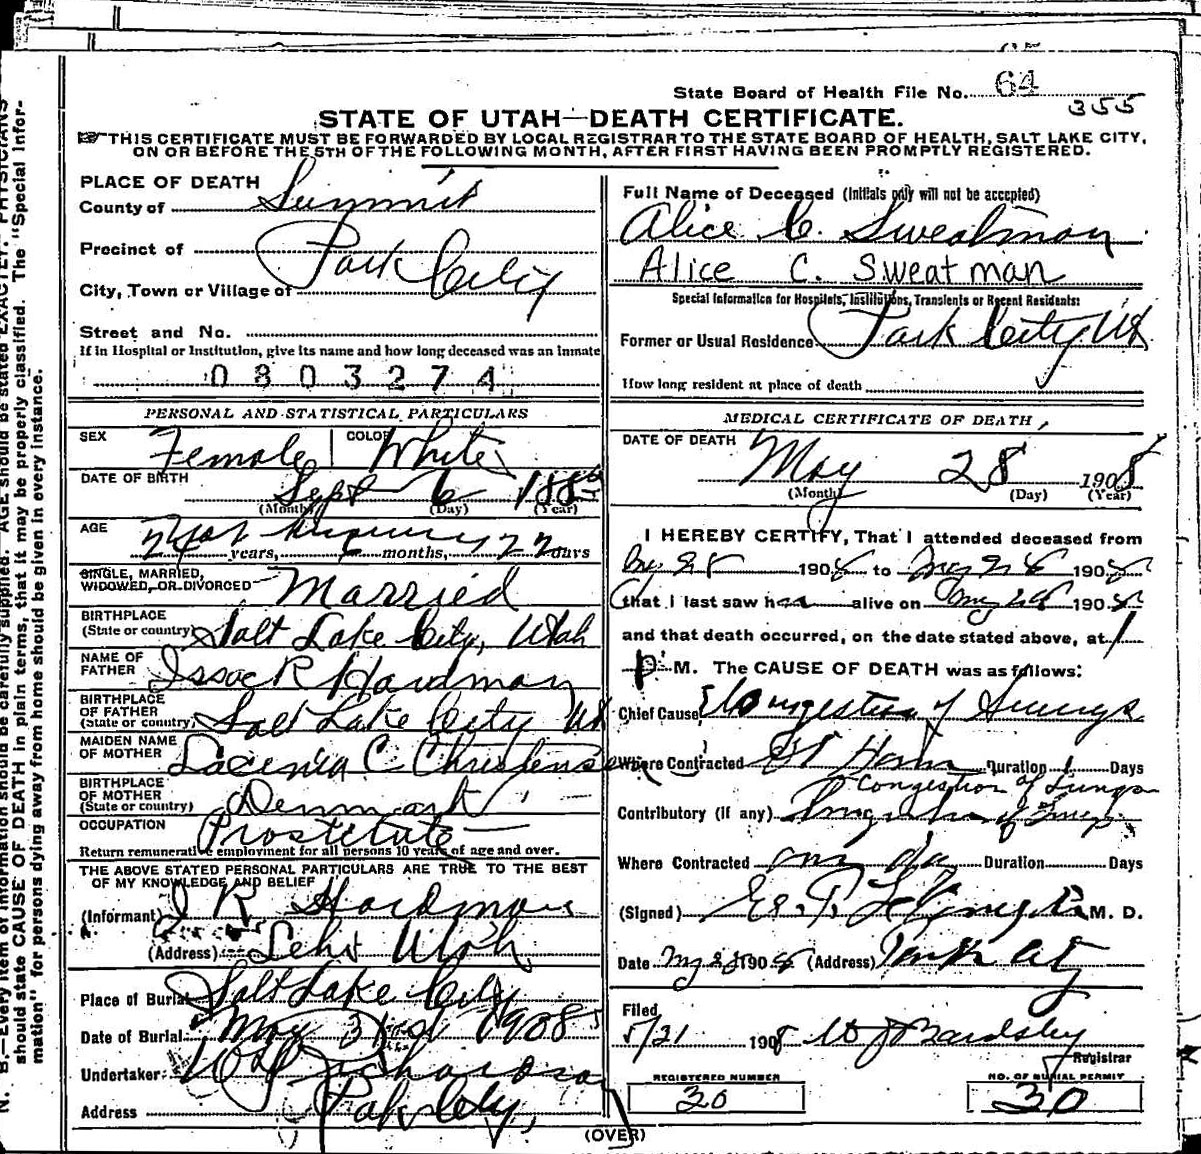 State Board of Health File No. 64
355
STATE OF UTAH—DEATH CERTIFICATE.
THIS CERTIFICATE MUST BE FORWARDED BY LOCAL REGISTRAR TO THE STATE BOARD OF HEALTH, SALT LAKE CITY,
ON OR BEFORE THE 5TH OF THE FOLLOWING MONTH, AFTER FIRST HAVING BEEN PROMPTLY REGISTERED.
PLACE OF DEATH
County of Summit
Precinct of
Park City
City, Town or Village of
Street and No.
If in Hospital or Institution, give its name and how long deceased was an inmate
0803274
PERSONAL AND STATISTICAL PARTICULARS
SEX Female COLOR White
DATE OF BIRTH Sept 6
(Month) (Day) (Year)
AGE
years, months, days
SINGLE, MARRIED,
WIDOWED, OR DIVORCED Married
BIRTHPLACE
(State or country) Salt Lake City, Utah
NAME OF
FATHER Issac R Hardman
BIRTHPLACE
OF FATHER
(State or country) Salt Lake City Ut
MAIDEN NAME
OF MOTHER C Christensen
BIRTHPLACE
OF MOTHER
(State or country) Denmark
OCCUPATION Prostetute
Return remunerative employment for all persons 10 years of age and over.
THE ABOVE STATED PERSONAL PARTICULARS ARE TRUE TO THE BEST
OF MY KNOWLEDGE AND BELIEF
(Informant) I R Hardman
(Address) Lehi Utah
Place of Burial Salt Lake City
Date of Burial May 31st 1908
Undertaker Richardson
Address Park City,
Full Name of Deceased (Initials only will not be accepted)
Alice C. Sweatman
Alice C. Sweatman
Special Information for Hospitals, Institutions, Transients or Recent Residents:
Former or Usual Residence Park City Ut
How long resident at place of death
MEDICAL CERTIFICATE OF DEATH
DATE OF DEATH May 28 1908
(Month) (Day) (Year)
I HEREBY CERTIFY, That I attended deceased from
May 28 1908 to May 28 1908
that I last saw her alive on May 28 1908
and that death occurred, on the date stated above, at 1
P M. The CAUSE OF DEATH was as follows:
Chief Cause Congestion of Lungs
Where Contracted At Home Duration 1 Days
Congestion of Lungs
Contributory (if any)
Where Contracted Duration Days
(Signed) M. D.
Date May 28 1908 (Address) Park City
Filed
5/31 1908 Bardsley
Registrar
REGISTERED NUMBER
30
NO. OF BURIAL PERMIT
30
(OVER)
N. B.—Every item of information should be carefully supplied. AGE should be stated EXACTLY. PHYSICIANS
should state CAUSE OF DEATH in plain terms, that it may be properly classified. The "Special Infor-
mation" for persons dying away from home should be given in every instance.